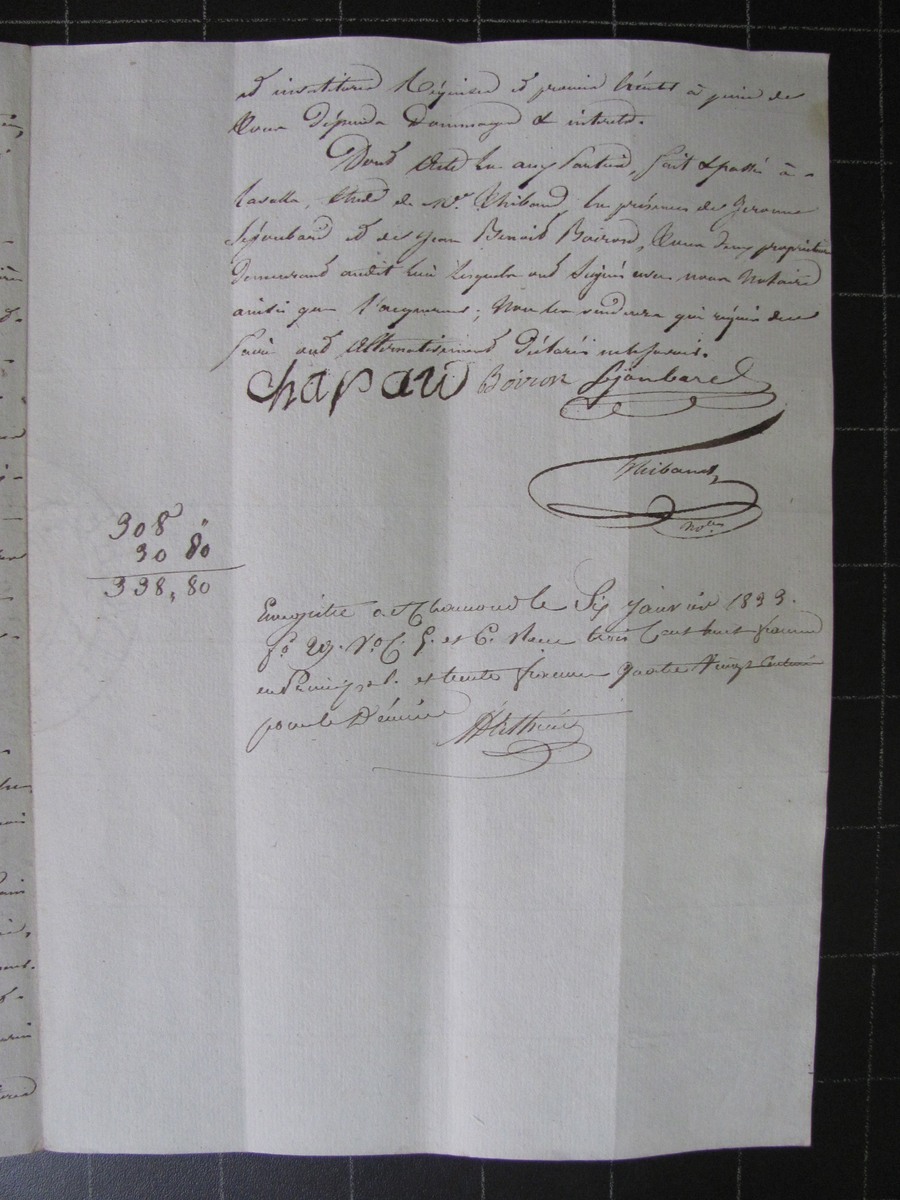 et institured Réginend et promis bients à peine de
tous dépends dommages & intérêts.
Dont Acte en aux parties, fait & passé à
Lavalla, étude de Mr. Thibaud, en présence de Jerome
Sejoubard et de Jean Benoit Boiron, tous deux propriétaires
demeurant audit lieu lesquels ont signé avec nous Notaire
ainsi que l'acquereur; Non les vendeurs qui requis de
faire ont alternativement déclarés ne le savoir.
Chapard Boiron Sjoubard
Thibaud
Nore
308 "
30 80
338, 80
Enregistré à St Chamond le Six janvier 1833.
fo. 29. Vo. C. 5. et 6. Reçu trois Cent huit francs
en Principal. et trente francs quatre Vingt Centimes
pour le Dixième